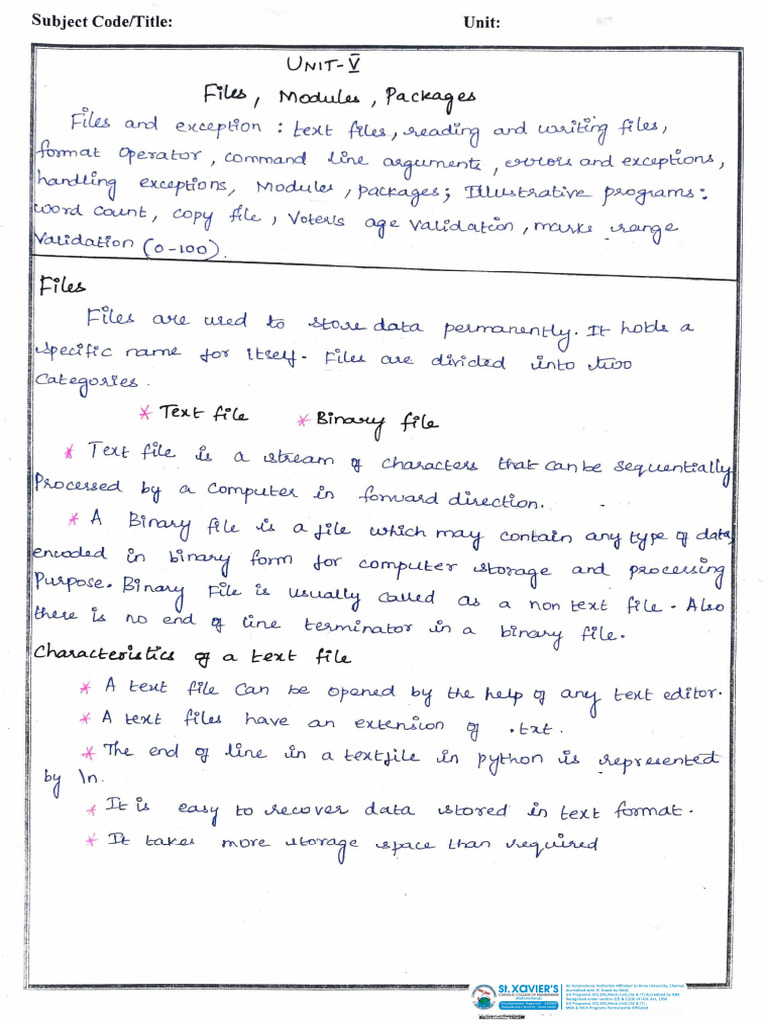 Subject Code/Title: Unit:
UNIT-V
Files, Modules, Packages
Files and exception: text files, reading and writing files,
format operator, command line arguments, errors and exceptions,
handling exceptions, Modules, packages; Illustrative programs:
word count, copy file, Voter's age validation, marks range
validation (0-100).
Files
Files are used to store data permanently. It holds a
specific name for itself. Files are divided into two
categories.
* Text file * Binary file
* Text file is a stream of characters that can be sequentially
Processed by a computer in forward direction.
* A Binary file is a file which may contain any type of data,
encoded in binary form for computer storage and processing
Purpose. Binary File is usually called as a non text file. Also
there is no end of line terminator in a binary file.
Characteristics of a text file
* A text file can be opened by the help of any text editor.
* A text files have an extension of .txt.
* The end of line in a textfile in python is represented
by \n.
* It is easy to recover data stored in text format.
* It takes more storage space than required
St. XAVIER'S
CATHOLIC COLLEGE OF ENGINEERING